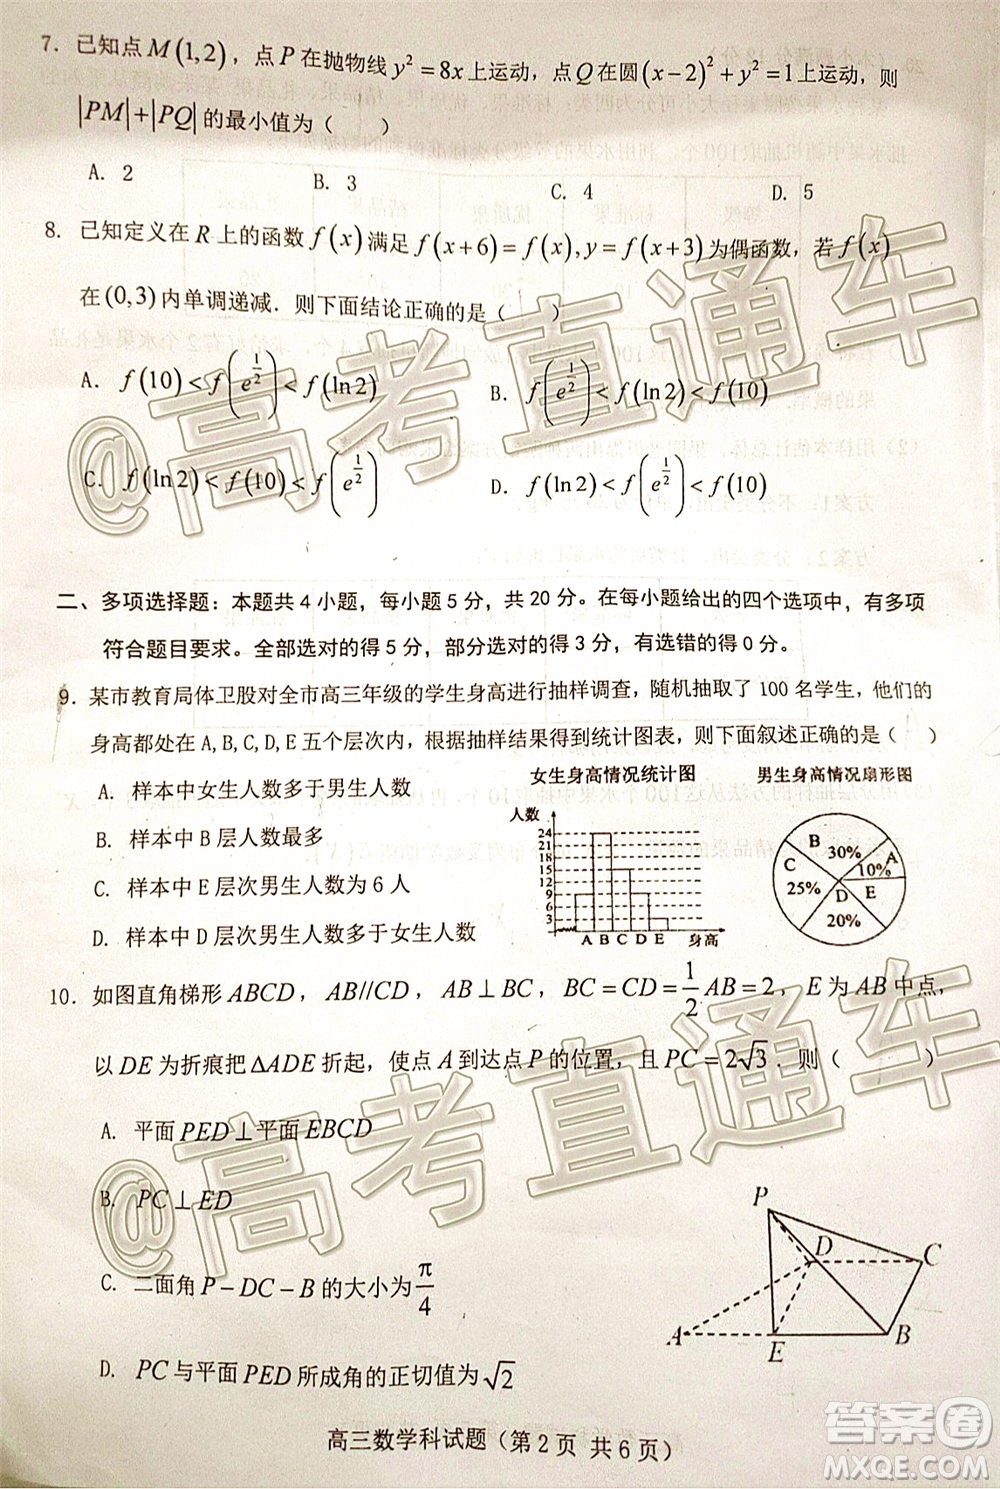 7. 已知点 M(1,2)，点 P 在抛物线 y²=8x 上运动，点 Q 在圆 (x−2)²+y²=1 上运动，则
|PM|+|PQ| 的最小值为（　　）
A. 2　　B. 3　　C. 4　　D. 5
8. 已知定义在 R 上的函数 f(x) 满足 f(x+6)=f(x), y=f(x+3) 为偶函数，若 f(x)
在 (0,3) 内单调递减．则下面结论正确的是（　　）
A. f(10)<f(e^{1/2})<f(ln2)　　B. f(e^{1/2})<f(ln2)<f(10)
C. f(ln2)<f(10)<f(e^{1/2})　　D. f(ln2)<f(e^{1/2})<f(10)
二、多项选择题：本题共 4 小题，每小题 5 分，共 20 分。在每小题给出的四个选项中，有多项
符合题目要求。全部选对的得 5 分，部分选对的得 3 分，有选错的得 0 分。
9. 某市教育局体卫股对全市高三年级的学生身高进行抽样调查，随机抽取了 100 名学生，他们的
身高都处在 A,B,C,D,E 五个层次内，根据抽样结果得到统计图表，则下面叙述正确的是（　）
A. 样本中女生人数多于男生人数
B. 样本中 B 层人数最多
C. 样本中 E 层次男生人数为 6 人
D. 样本中 D 层次男生人数多于女生人数
女生身高情况统计图
人数
24
21
18
15
12
9
6
3
A B C D E 身高
男生身高情况扇形图
B 30%
A 10%
C 25%
D 20%
E
10. 如图直角梯形 ABCD，AB//CD，AB⊥BC，BC=CD=1/2AB=2，E 为 AB 中点，
以 DE 为折痕把 ΔADE 折起，使点 A 到达点 P 的位置，且 PC=2√3．则（　　）
A. 平面 PED⊥平面 EBCD
B. PC⊥ED
C. 二面角 P−DC−B 的大小为 π/4
D. PC 与平面 PED 所成角的正切值为 √2
P
D
C
A
E
B
高三数学科试题（第 2 页 共 6 页）
@高考直通车
@高考直通车
答案圈
MXQE.COM